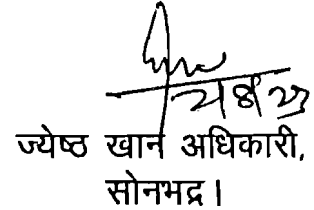 ज्येष्ठ खान अधिकारी,
सोनभद्र।